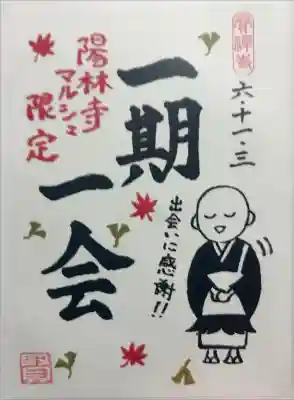 六・十一・三
陽林寺
マルシェ
限定
一期
一会
出会いに感謝!!